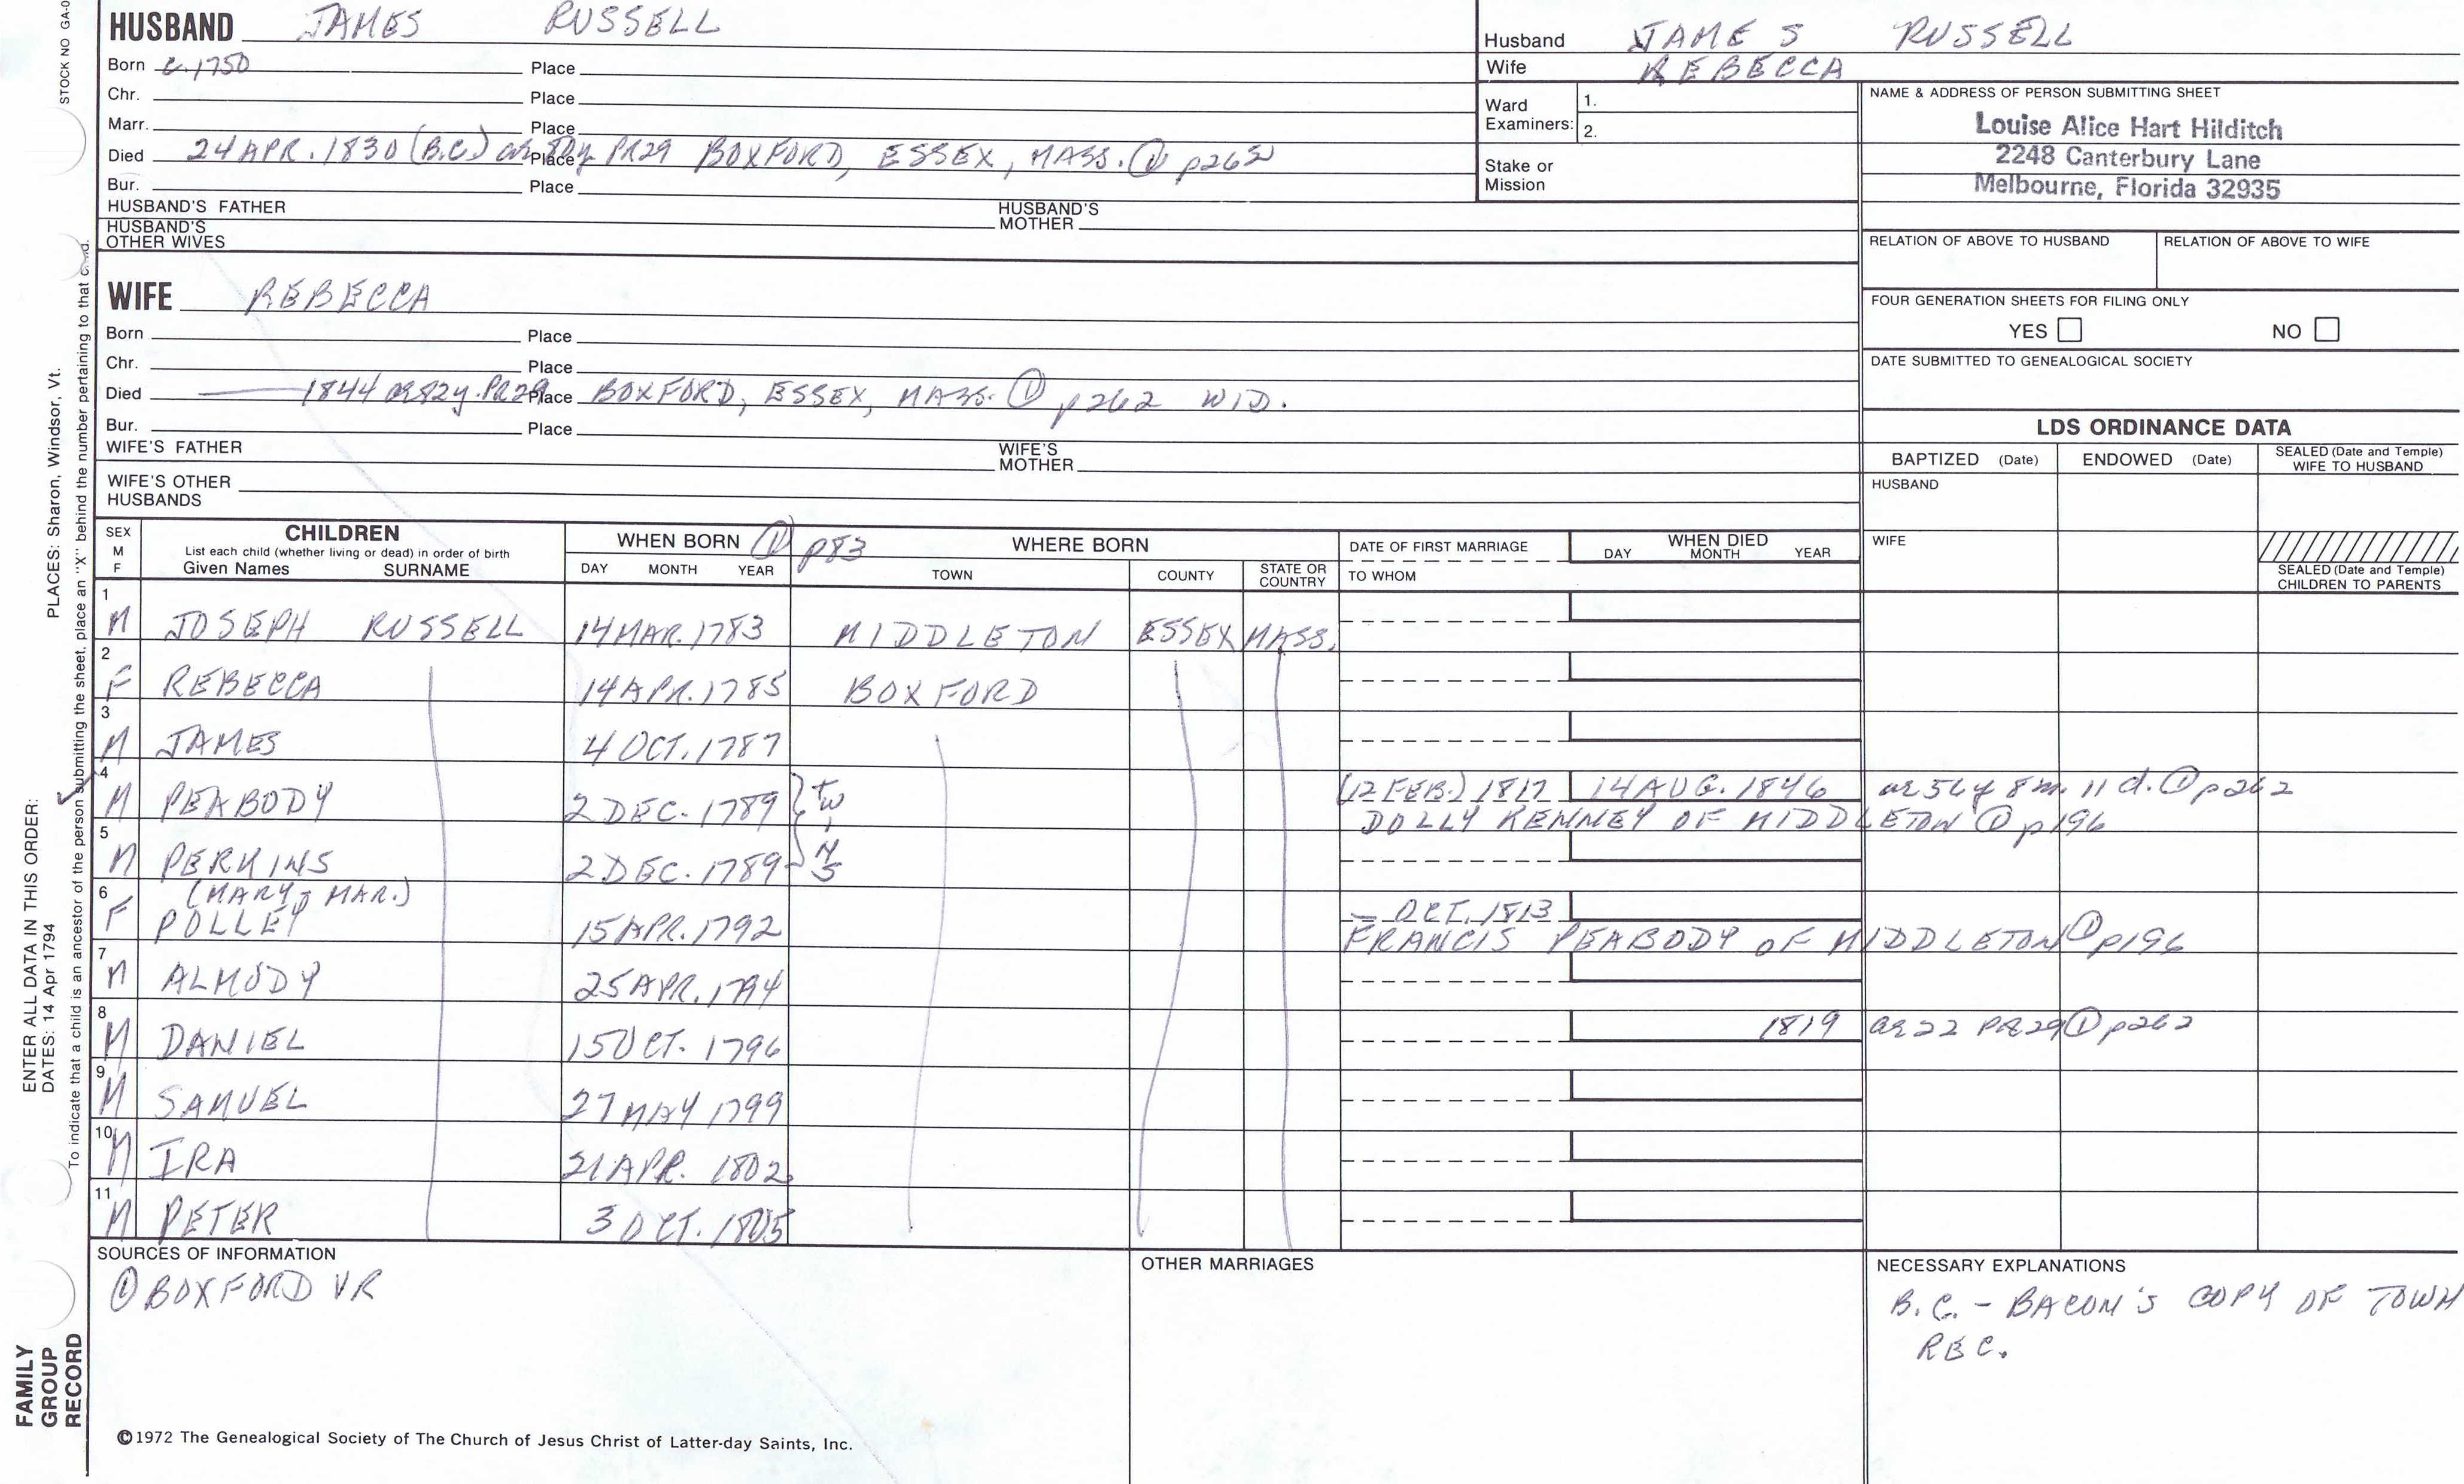 STOCK NO GA-0
HUSBAND JAMES RUSSELL
Born c.1750 Place
Chr. Place
Marr. Place
Died 24 APR. 1830 (B.C.) ae 80y PR29 Place BOXFORD, ESSEX, MASS. ① p262
Bur. Place
HUSBAND'S FATHER HUSBAND'S MOTHER
HUSBAND'S OTHER WIVES
Husband JAMES RUSSELL
Wife REBECCA
Ward Examiners: 1.
2.
Stake or Mission
NAME & ADDRESS OF PERSON SUBMITTING SHEET
Louise Alice Hart Hilditch
2248 Canterbury Lane
Melbourne, Florida 32935
RELATION OF ABOVE TO HUSBAND RELATION OF ABOVE TO WIFE
FOUR GENERATION SHEETS FOR FILING ONLY
YES NO
DATE SUBMITTED TO GENEALOGICAL SOCIETY
WIFE REBECCA
Born Place
Chr. Place
Died 1844 ae 82y. PR29 Place BOXFORD, ESSEX, MASS. ① p262 WID.
Bur. Place
WIFE'S FATHER WIFE'S MOTHER
WIFE'S OTHER HUSBANDS
LDS ORDINANCE DATA
BAPTIZED (Date) ENDOWED (Date) SEALED (Date and Temple) WIFE TO HUSBAND
HUSBAND
WIFE
SEALED (Date and Temple) CHILDREN TO PARENTS
SEX M F
CHILDREN
List each child (whether living or dead) in order of birth
Given Names SURNAME
WHEN BORN ① p83
DAY MONTH YEAR
WHERE BORN
TOWN COUNTY STATE OR COUNTRY
DATE OF FIRST MARRIAGE
TO WHOM
WHEN DIED
DAY MONTH YEAR
1 M JOSEPH RUSSELL 14 MAR. 1783 MIDDLETON ESSEX MASS.
2 F REBECCA 14 APR. 1785 BOXFORD
3 M JAMES 4 OCT. 1787
4 M PEABODY 2 DEC. 1789 } TWINS (12 FEB.) 1817 14 AUG. 1846 ae 56y 8m. 11 d. ① p262
DOLLY KENNEY OF MIDDLETON ① p196
5 M PERKINS 2 DEC. 1789
6 F (MARY, MAR.)
POLLEY 15 APR. 1792 — OCT. 1813
FRANCIS PEABODY OF MIDDLETON ① p196
7 M ALMODY 25 APR. 1794
8 M DANIEL 15 OCT. 1796 1819 ae 22 PR29 ① p262
9 M SAMUEL 27 MAY 1799
10 M IRA 21 APR. 1802
11 M PETER 3 OCT. 1805
SOURCES OF INFORMATION
① BOXFORD VR
OTHER MARRIAGES
NECESSARY EXPLANATIONS
B.C. - BACON'S COPY OF TOWN
REC.
©1972 The Genealogical Society of The Church of Jesus Christ of Latter-day Saints, Inc.
FAMILY GROUP RECORD
ENTER ALL DATA IN THIS ORDER:
DATES: 14 Apr 1794
PLACES: Sharon, Windsor, Vt.
To indicate that a child is an ancestor of the person submitting the sheet, place an "X" behind the number pertaining to that